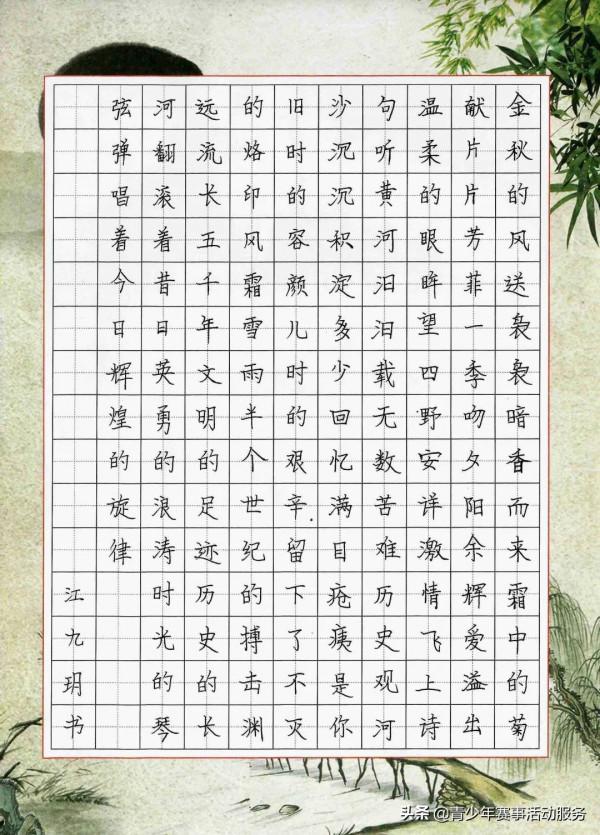 金秋的风送袅袅暗香而来霜中的菊
献片片芳菲一季吻夕阳余辉爱溢出
温柔的眼眸望四野安详激情飞上诗
句听黄河汩汩载无数苦难历史观河
沙沉沉积淀多少回忆满目疮痍是你
旧时的容颜儿时的艰辛留下了不灭
的烙印风霜雪雨半个世纪的搏击渊
远流长五千年文明的足迹历史的长
河翻滚着昔日英勇的浪涛时光的琴
弦弹唱着今日辉煌的旋律
江九玥书
头条@青少年赛事活动服务